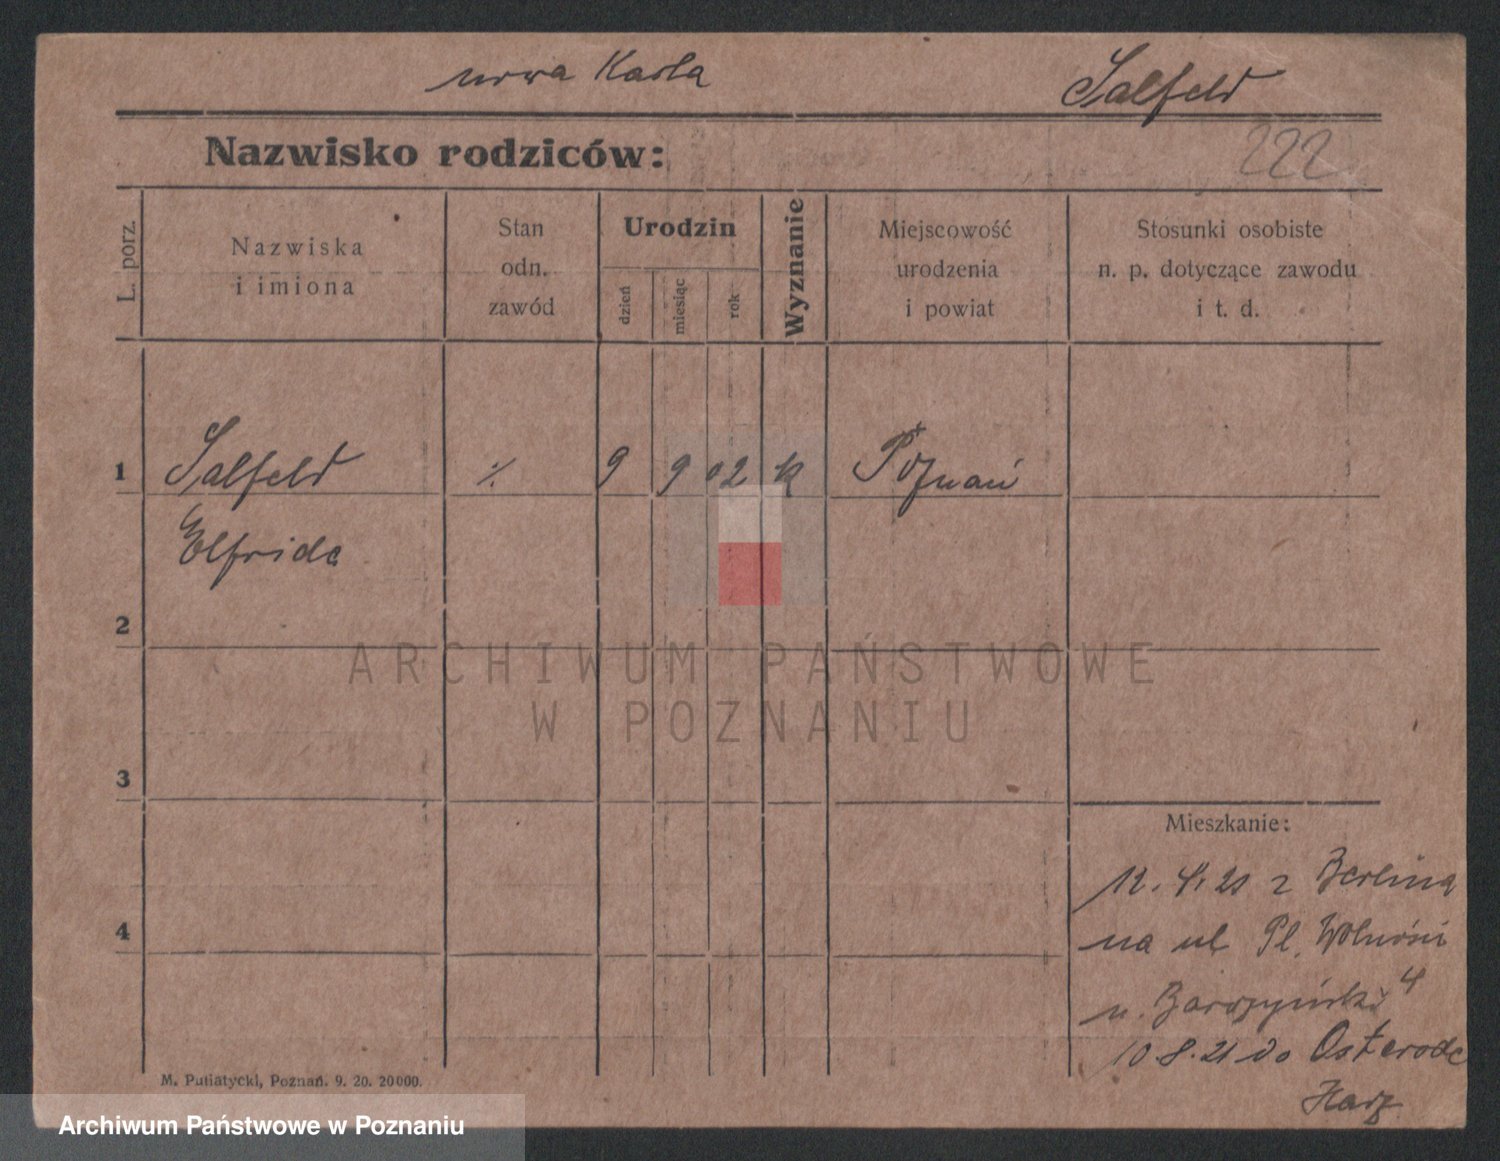 nowa Karta
Salfeld
Nazwisko rodziców:
222
L. porz.
Nazwiska
i imiona
Stan
odn.
zawód
Urodzin
dzień
miesiąc
rok
Wyznanie
Miejscowość
urodzenia
i powiat
Stosunki osobiste
n. p. dotyczące zawodu
i t. d.
1 Salfeld ⁒ 9 9 02 k Poznań
Elfride
2
ARCHIWUM PAŃSTWOWE
W POZNANIU
3
Mieszkanie:
12. 4. 21 z Berlina
4
na ul. Pl. Wolności
u. 4
10.8.21 do Osterode
Harz
M. Putiatycki, Poznań. 9. 20. 20000.
Archiwum Państwowe w Poznaniu